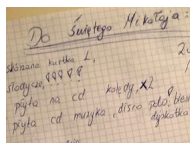 Do Świętego Mikołaja
skórzana kurtka L,
słodycze,
płyta na cd kolędy, x2
płyta cd muzyka disco polo,
dyskoteka